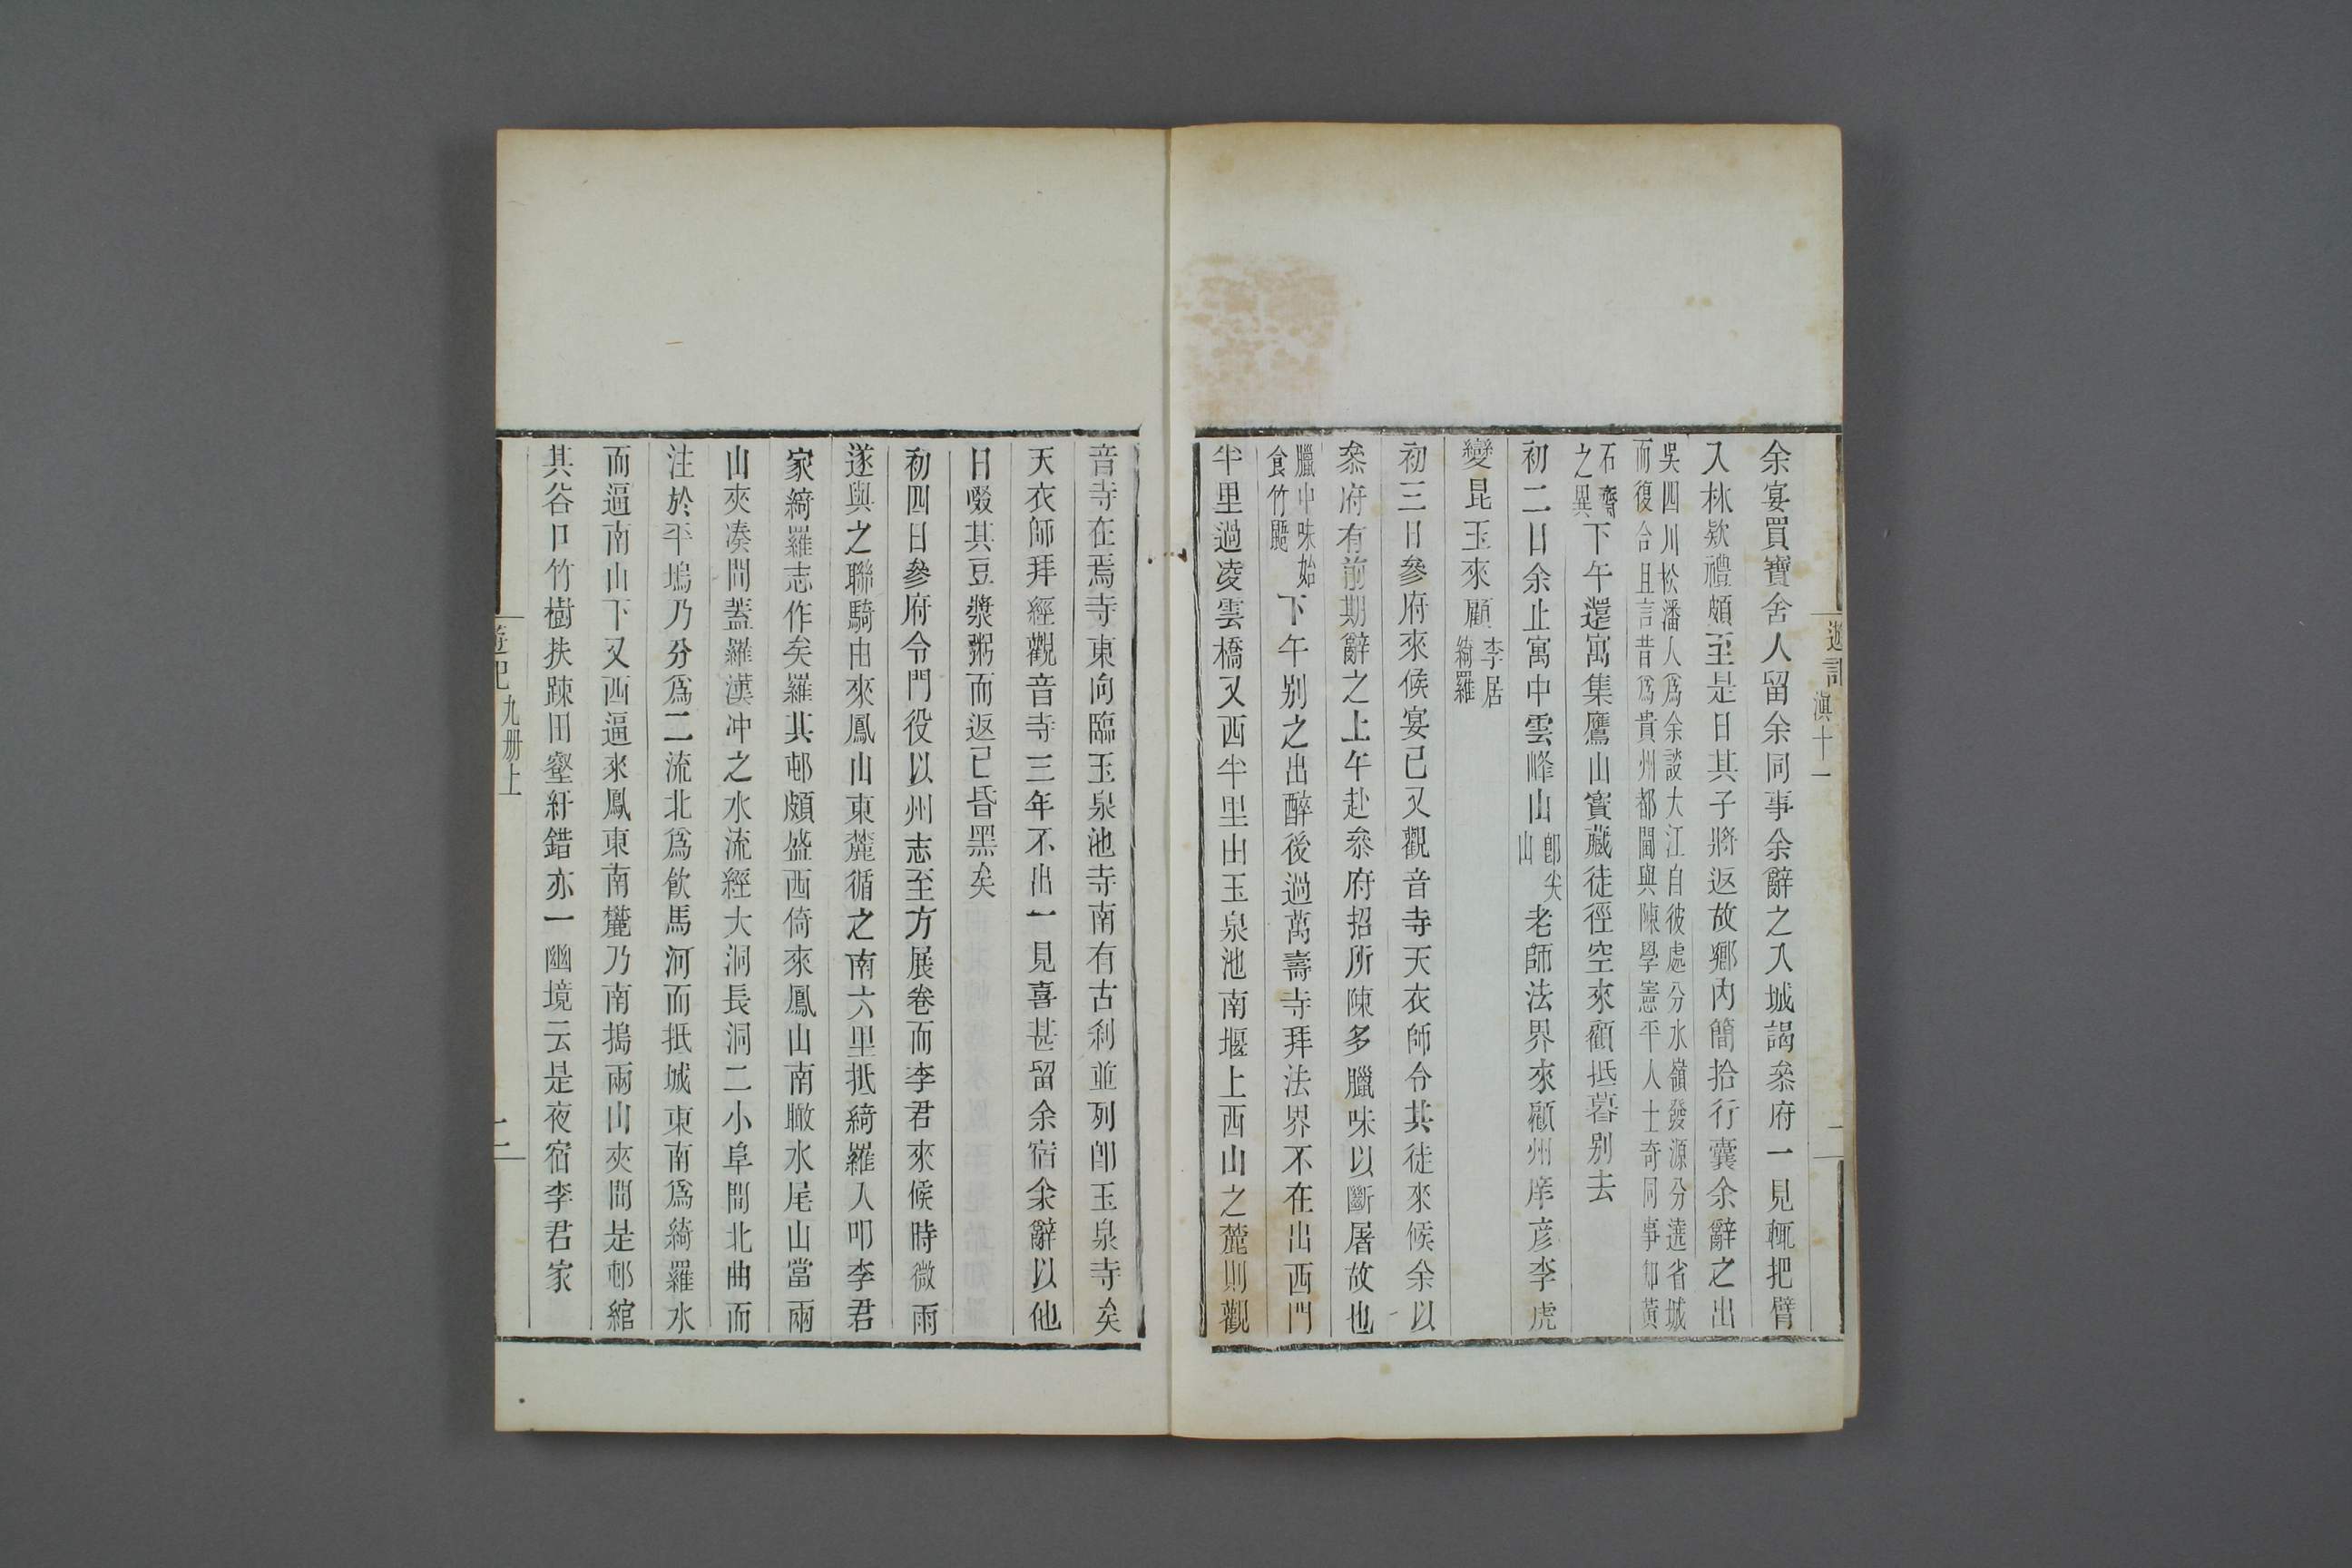 遊記 滇十一
余宴買寶舍人留余同事余辭之入城謁叅府一見輒把臂
入林欵禮頗至是日其子將返故鄉內簡拾行囊余辭之出
吳四川松潘人爲余談大江自彼處分水嶺發源分遶省城
而復合且言昔爲貴州都閫與陳學憲平人士奇同事知黃
石齋之異下午還寓集鷹山寳藏徒徑空來顧抵暮别去
初二日余止寓中雲峰山卽尖山老師法界來顧州庠彥李虎
變昆玉來顧李居綺羅
初三日參府來候宴已又觀音寺天衣師令其徒來候余以
叅府有前期辭之上午赴叅府招所陳多臘味以斷屠故也
臘中味始食竹䶉下午别之出醉後過萬壽寺拜法界不在出西門
半里過凌雲橋又西半里由玉泉池南堰上西山之麓則觀
音寺在焉寺東向臨玉泉池寺南有古刹並列卽玉泉寺矣
天衣師拜經觀音寺三年不出一見喜甚留余宿余辭以他
日啜其豆漿粥而返已昏黑矣
初四日參府令門役以州志至方展卷而李君來候時微雨
遂與之聯騎由來鳳山東麓循之南六里抵綺羅入叩李君
家綺羅志作矣羅其邨頗盛西倚來鳳山南瞰水尾山當兩
山夾凑間蓋羅漢冲之水流經大洞長洞二小阜間北曲而
注於平塢乃分爲二流北爲飮馬河而抵城東南爲綺羅水
而逼南山下又西逼來鳳東南麓乃南搗兩山夾間是邨綰
其谷口竹樹扶踈田壑紆錯亦一幽境云是夜宿李君家
遊記 九册上
二